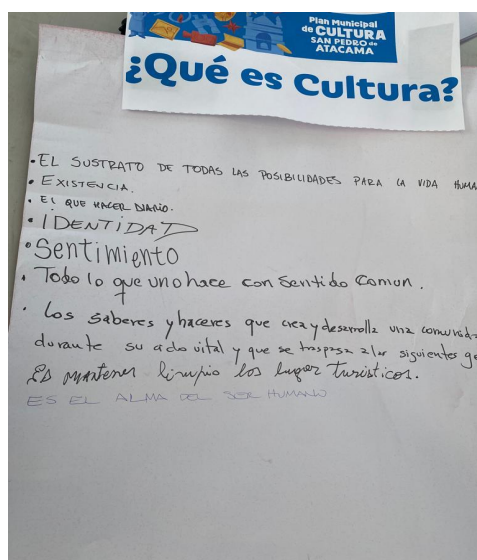 Plan Municipal
de CULTURA
SAN PEDRO de
ATACAMA
¿Qué es Cultura?
• EL SUSTRATO DE TODAS LAS POSIBILIDADES PARA LA VIDA HUMA
• EXISTENCIA.
• EL QUE HACER DIARIO.
• IDENTIDAD
• Sentimiento
• Todo lo que uno hace con Sentido Comun.
• Los saberes y haceres que crea y desarrolla una comunida
durante su ciclo vital y que se traspasa a las siguientes ge
Es mantener limpio los lugar turisticos.
ES EL ALMA DEL SER HUMANO